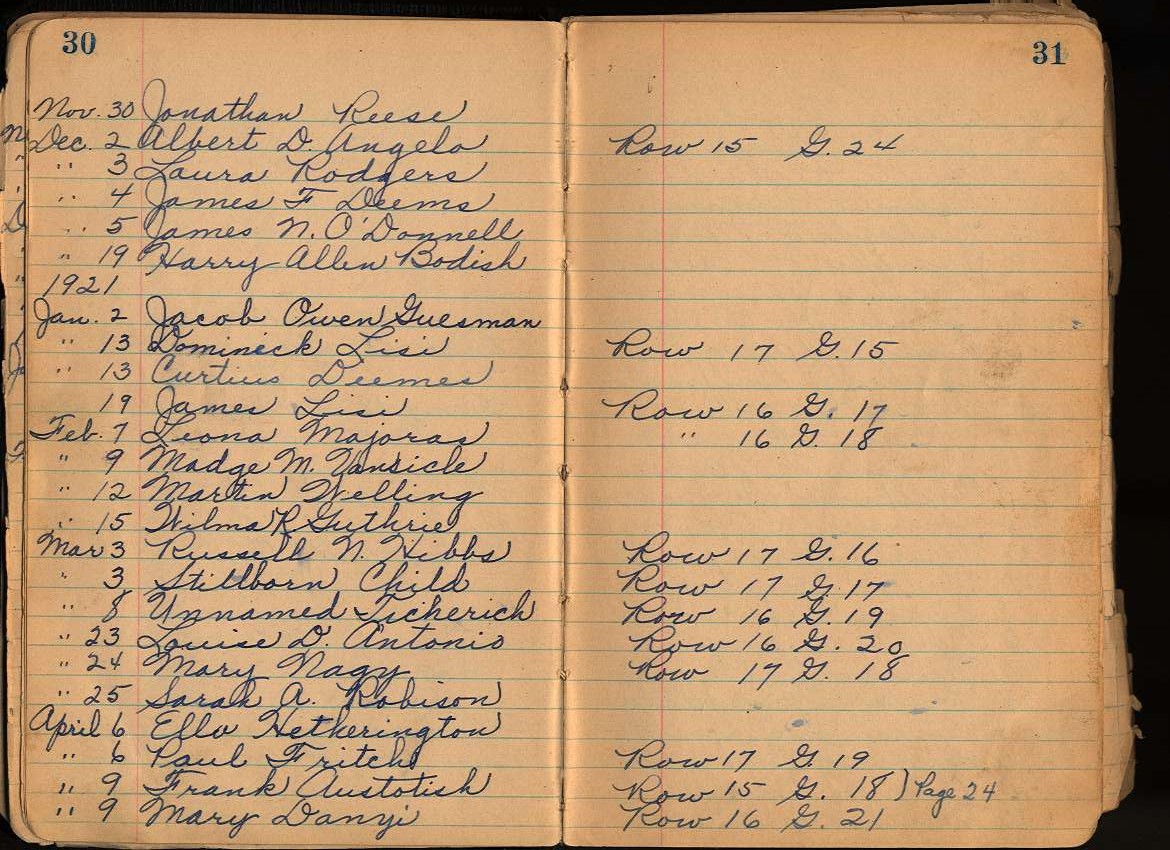 30
31
Nov. 30 Jonathan Reese
Dec. 2 Albert D. Angelo Row 15 G. 24
" 3 Laura Rodgers
" 4 James F Deems
" 5 James N. O'Donnell
" 19 Harry Allen Bodish
1921
Jan. 2 Jacob Owen Guesman
" 13 Domineck Lisi Row 17 G. 15
" 13 Curtius Deemes
19 James Lisi Row 16 G. 17
Feb. 7 Leona Majoras " 16 G. 18
" 9 Madge M. Vansicle
" 12 Martin Welling
" 15 Wilma R Guthrie
Mar 3 Russell N. Hibbs Row 17 G. 16
" 3 Stillborn Child Row 17 G. 17
" 8 Unnamed Ticherich Row 16 G. 19
" 23 Louise D. Antonio Row 16 G. 20
" 24 Mary Nagy Row 17 G. 18
" 25 Sarah A. Robison
April 6 Ella Hetherington
" 6 Paul Fritch Row 17 G. 19
" 9 Frank Austotish Row 15 G. 18) Page 24
" 9 Mary Danyi Row 16 G. 21